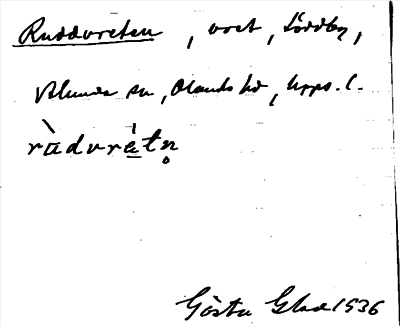 Ruddvreten, vret, Löddby,
Ålunda sn, Olands hd, Upps. l.
ràdvrétn̥
Gösta Glad 1936